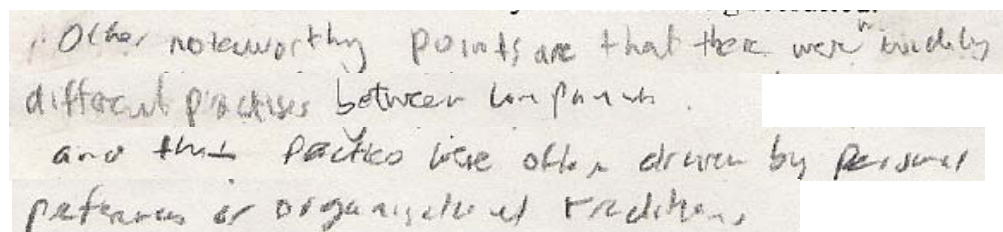 Other noteworthy points are that there were widely
different practises between companies.
and that practices were often driven by personal
preferences or organisational traditions